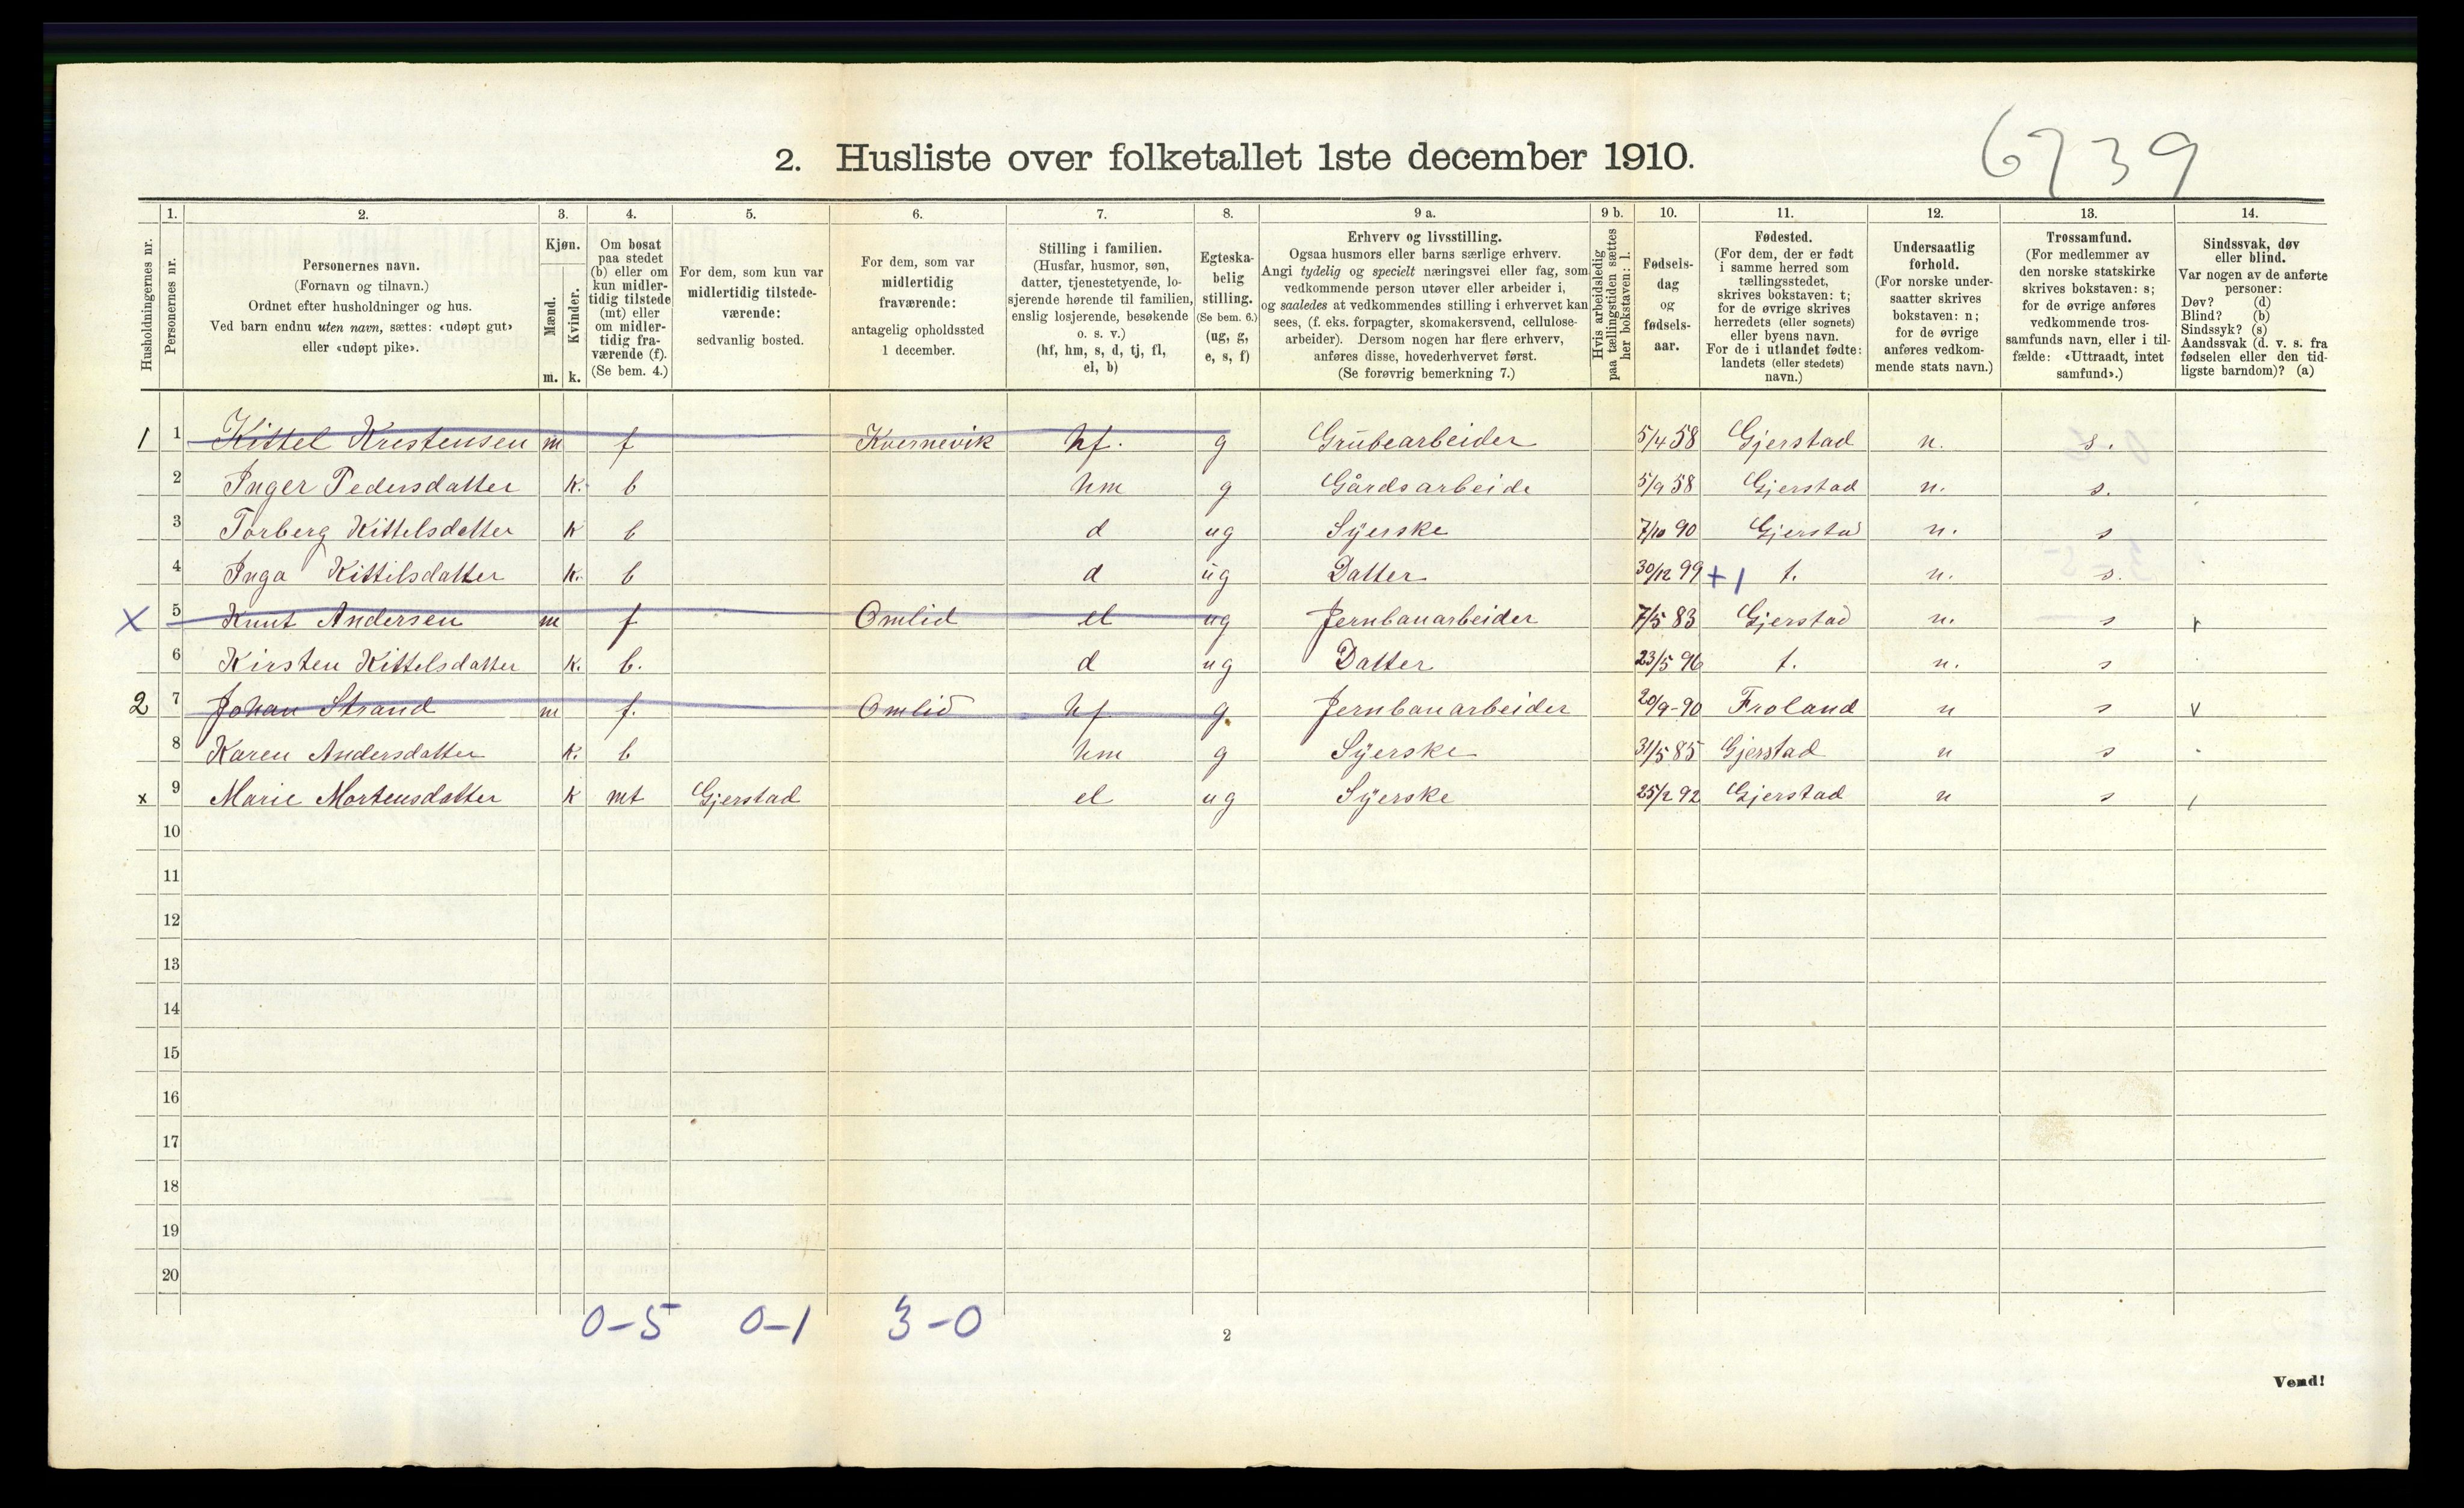 6739
2. Husliste over folketallet 1ste december 1910.
Husholdningernes nr.
1. Personernes nr.
2. Personernes navn.
(Fornavn og tilnavn.)
Ordnet efter husholdninger og hus.
Ved barn endnu uten navn, sættes: «udøpt gut»
eller «udøpt pike».
3. Kjøn.
Mænd. Kvinder.
m. k.
4. Om bosat
paa stedet
(b) eller om
kun midler-
tidig tilstede
(mt) eller
om midler-
tidig fra-
værende (f).
(Se bem. 4.)
5. For dem, som kun var
midlertidig tilstede-
værende:
sedvanlig bosted.
6. For dem, som var
midlertidig
fraværende:
antagelig opholdssted
1 december.
7. Stilling i familien.
(Husfar, husmor, søn,
datter, tjenestetyende, lo-
sjerende hørende til familien,
enslig losjerende, besøkende
o. s. v.)
(hf, hm, s, d, tj, fl,
el, b)
8. Egteska-
belig
stilling.
(Se bem. 6.)
(ug, g,
e, s, f)
9 a. Erhverv og livsstilling.
Ogsaa husmors eller barns særlige erhverv.
Angi tydelig og specielt næringsvei eller fag, som
vedkommende person utøver eller arbeider i,
og saaledes at vedkommendes stilling i erhvervet kan
sees, (f. eks. forpagter, skomakersvend, cellulose-
arbeider). Dersom nogen har flere erhverv,
anføres disse, hovederhvervet først.
(Se forøvrig bemerkning 7.)
9 b. Hvis arbeidsledig
paa tællingstiden sættes
her bokstaven: l.
10. Fødsels-
dag
og
fødsels-
aar.
11. Fødested.
(For dem, der er født
i samme herred som
tællingsstedet,
skrives bokstaven: t;
for de øvrige skrives
herredets (eller sognets)
eller byens navn.
For de i utlandet fødte:
landets (eller stedets)
navn.)
12. Undersaatlig
forhold.
(For norske under-
saatter skrives
bokstaven: n;
for de øvrige
anføres vedkom-
mende stats navn.)
13. Trossamfund.
(For medlemmer av
den norske statskirke
skrives bokstaven: s;
for de øvrige anføres
vedkommende tros-
samfunds navn, eller i til-
fælde: «Uttraadt, intet
samfund».)
14. Sindssvak, døv
eller blind.
Var nogen av de anførte
personer:
Døv? (d)
Blind? (b)
Sindssyk? (s)
Aandssvak (d. v. s. fra
fødselen eller den tid-
ligste barndom)? (a)
1 1 Kittel Kristensen m f Kvernevik hf. g Grubearbeider 5/4 58 Gjerstad n. s.
2 Inger Pedersdatter k. b hm g Gårdsarbeide 5/9 58 Gjerstad n. s.
3 Torberg Kittelsdatter k b d ug Syerske 7/10 90 Gjerstad n. s
4 Inga Kittilsdatter k. b d ug Datter 30/12 99 +1 t. n. s.
x 5 Knut Andersen m f Omlid el ug Jernbanarbeider 7/5 83 Gjerstad n. s
6 Kirsten Kittelsdatter k. b. d ug Datter 23/5 96 t. n. s
2 7 Johan Strand m f. Omlid hf g. Jernbanarbeider 20/9-90 Froland n s v
8 Karen Andersdatter k. b hm g Syerske 31/5 85 Gjerstad n s
x 9 Marie Mortensdatter k mt Gjerstad el ug Syerske 25/2 92 Gjerstad n s
10
11
12
13
14
15
16
17
18
19
20
0-5 0-1 3-0
2
Vend!